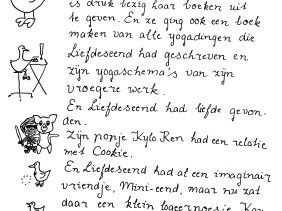 is druk bezig haar boeken uit
te geven. En ze ging ook een boek
maken van alle yogadingen die
Liefdeseend had geschreven en
zijn yogaschema's van zijn
vroegere werk.
En Liefdeseend had liefde gevon-
den.
Zijn nonje Kylo Ren had een relatie
met Cookie.
En Liefdeseend had al een imaginair
vriendje, Mini-eend, maar nu zat
daar een klein logeernoesje